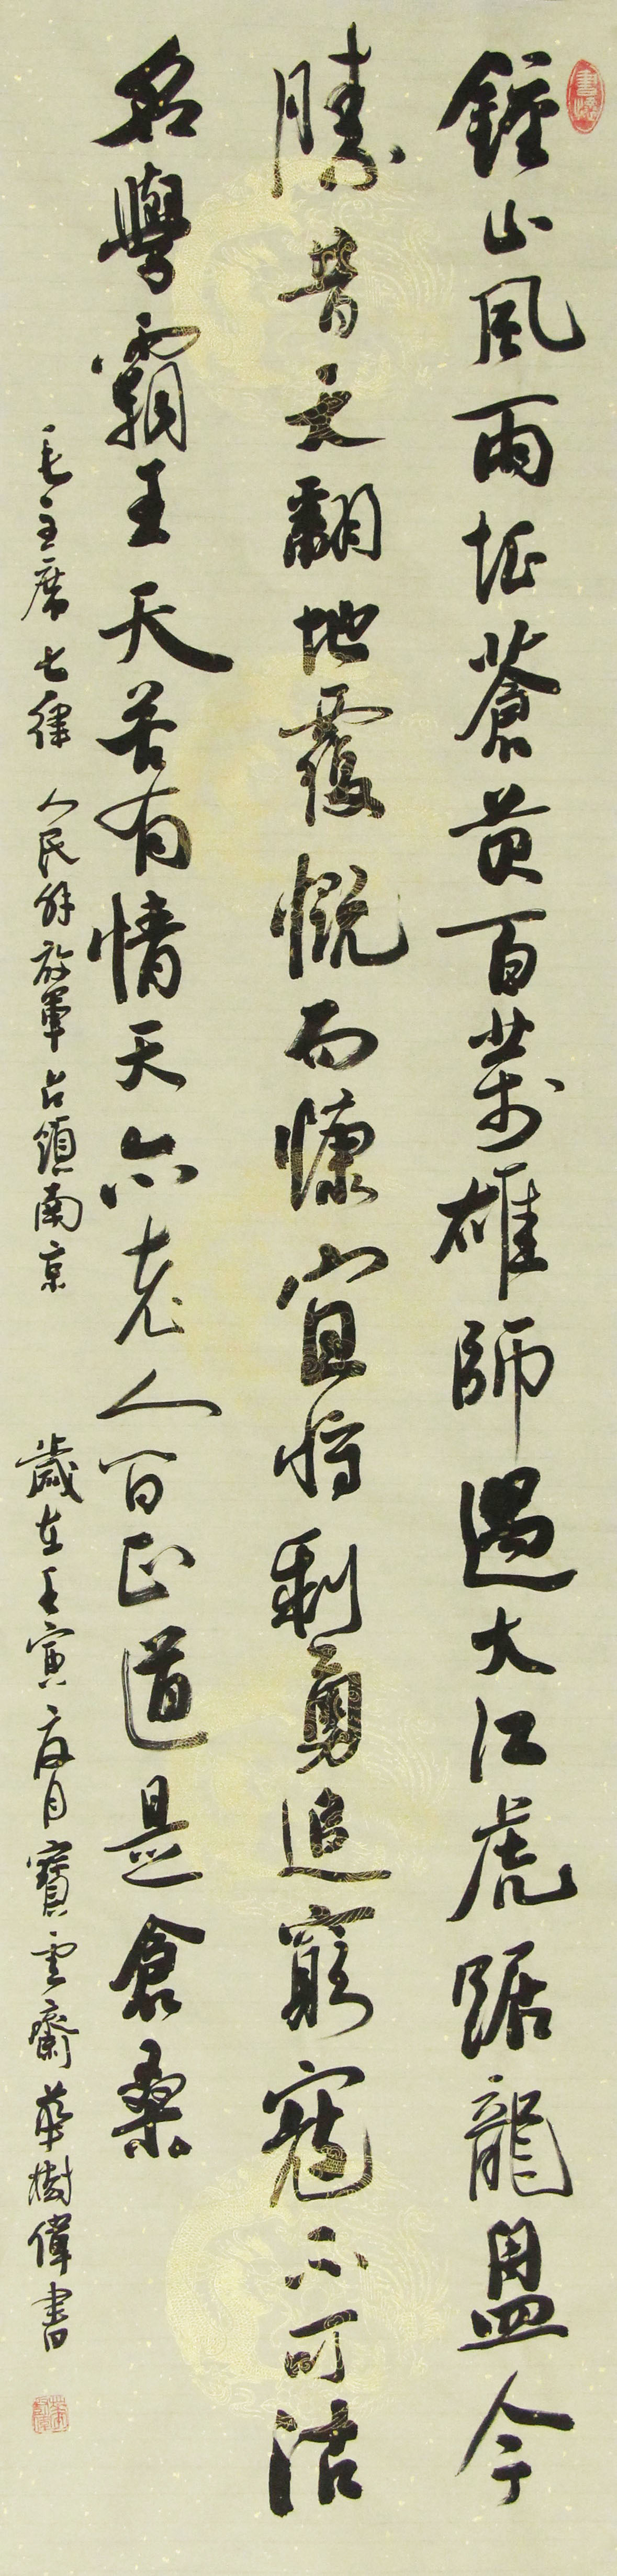 鍾山風雨起蒼黃百萬雄師過大江虎踞龍盤今
勝昔天翻地覆慨而慷宜將剩勇追窮寇不可沽
名學霸王天若有情天亦老人間正道是倉桑
毛主席七律 人民解放軍占領南京 歲在壬寅夏月寶雲齋華樹偉書